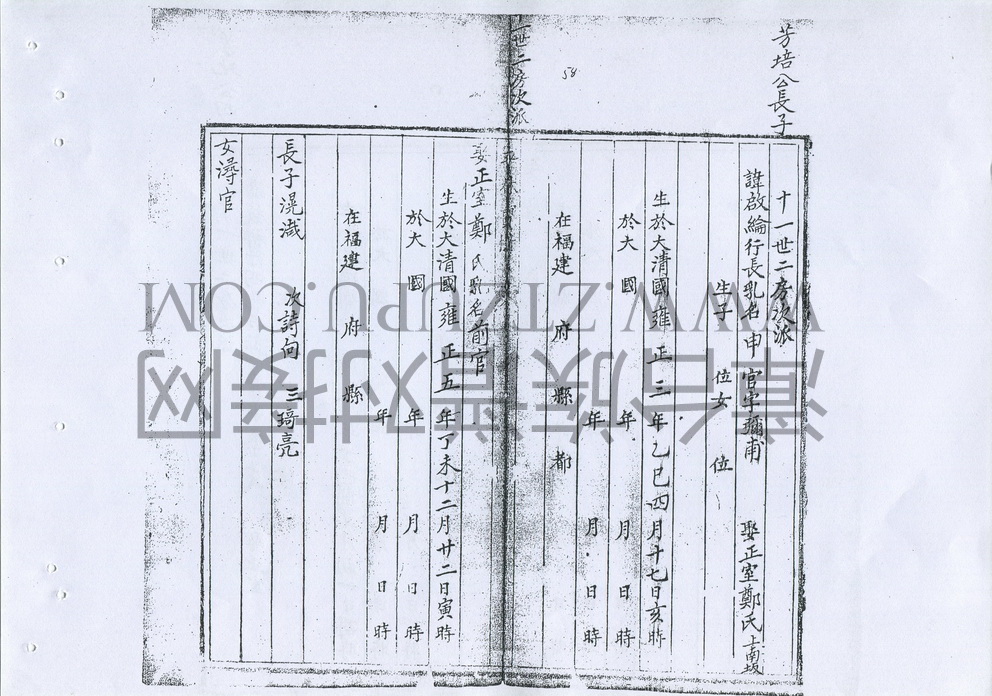 芳培公長子
十一世二房次派
諱啟綸行長乳名申 官字彌甫 娶正室鄭氏上南坂
生子 位女 位
生於大清國雍正三年乙巳四月十七日亥時
於大 國 年 月 日 時
年 月 日 時
在福建 府 縣 都
世二房次派
58
娶正室鄭氏乳名前官
生於大清國雍正五年丁未十二月廿二日寅時
於大 國 年 月 日 時
年 月 日 時
在福建 府 縣
長子滉瀐 次詩向 三錡亮
女潯官
漳台族谱对接网
WWW.ZTZUPU.COM